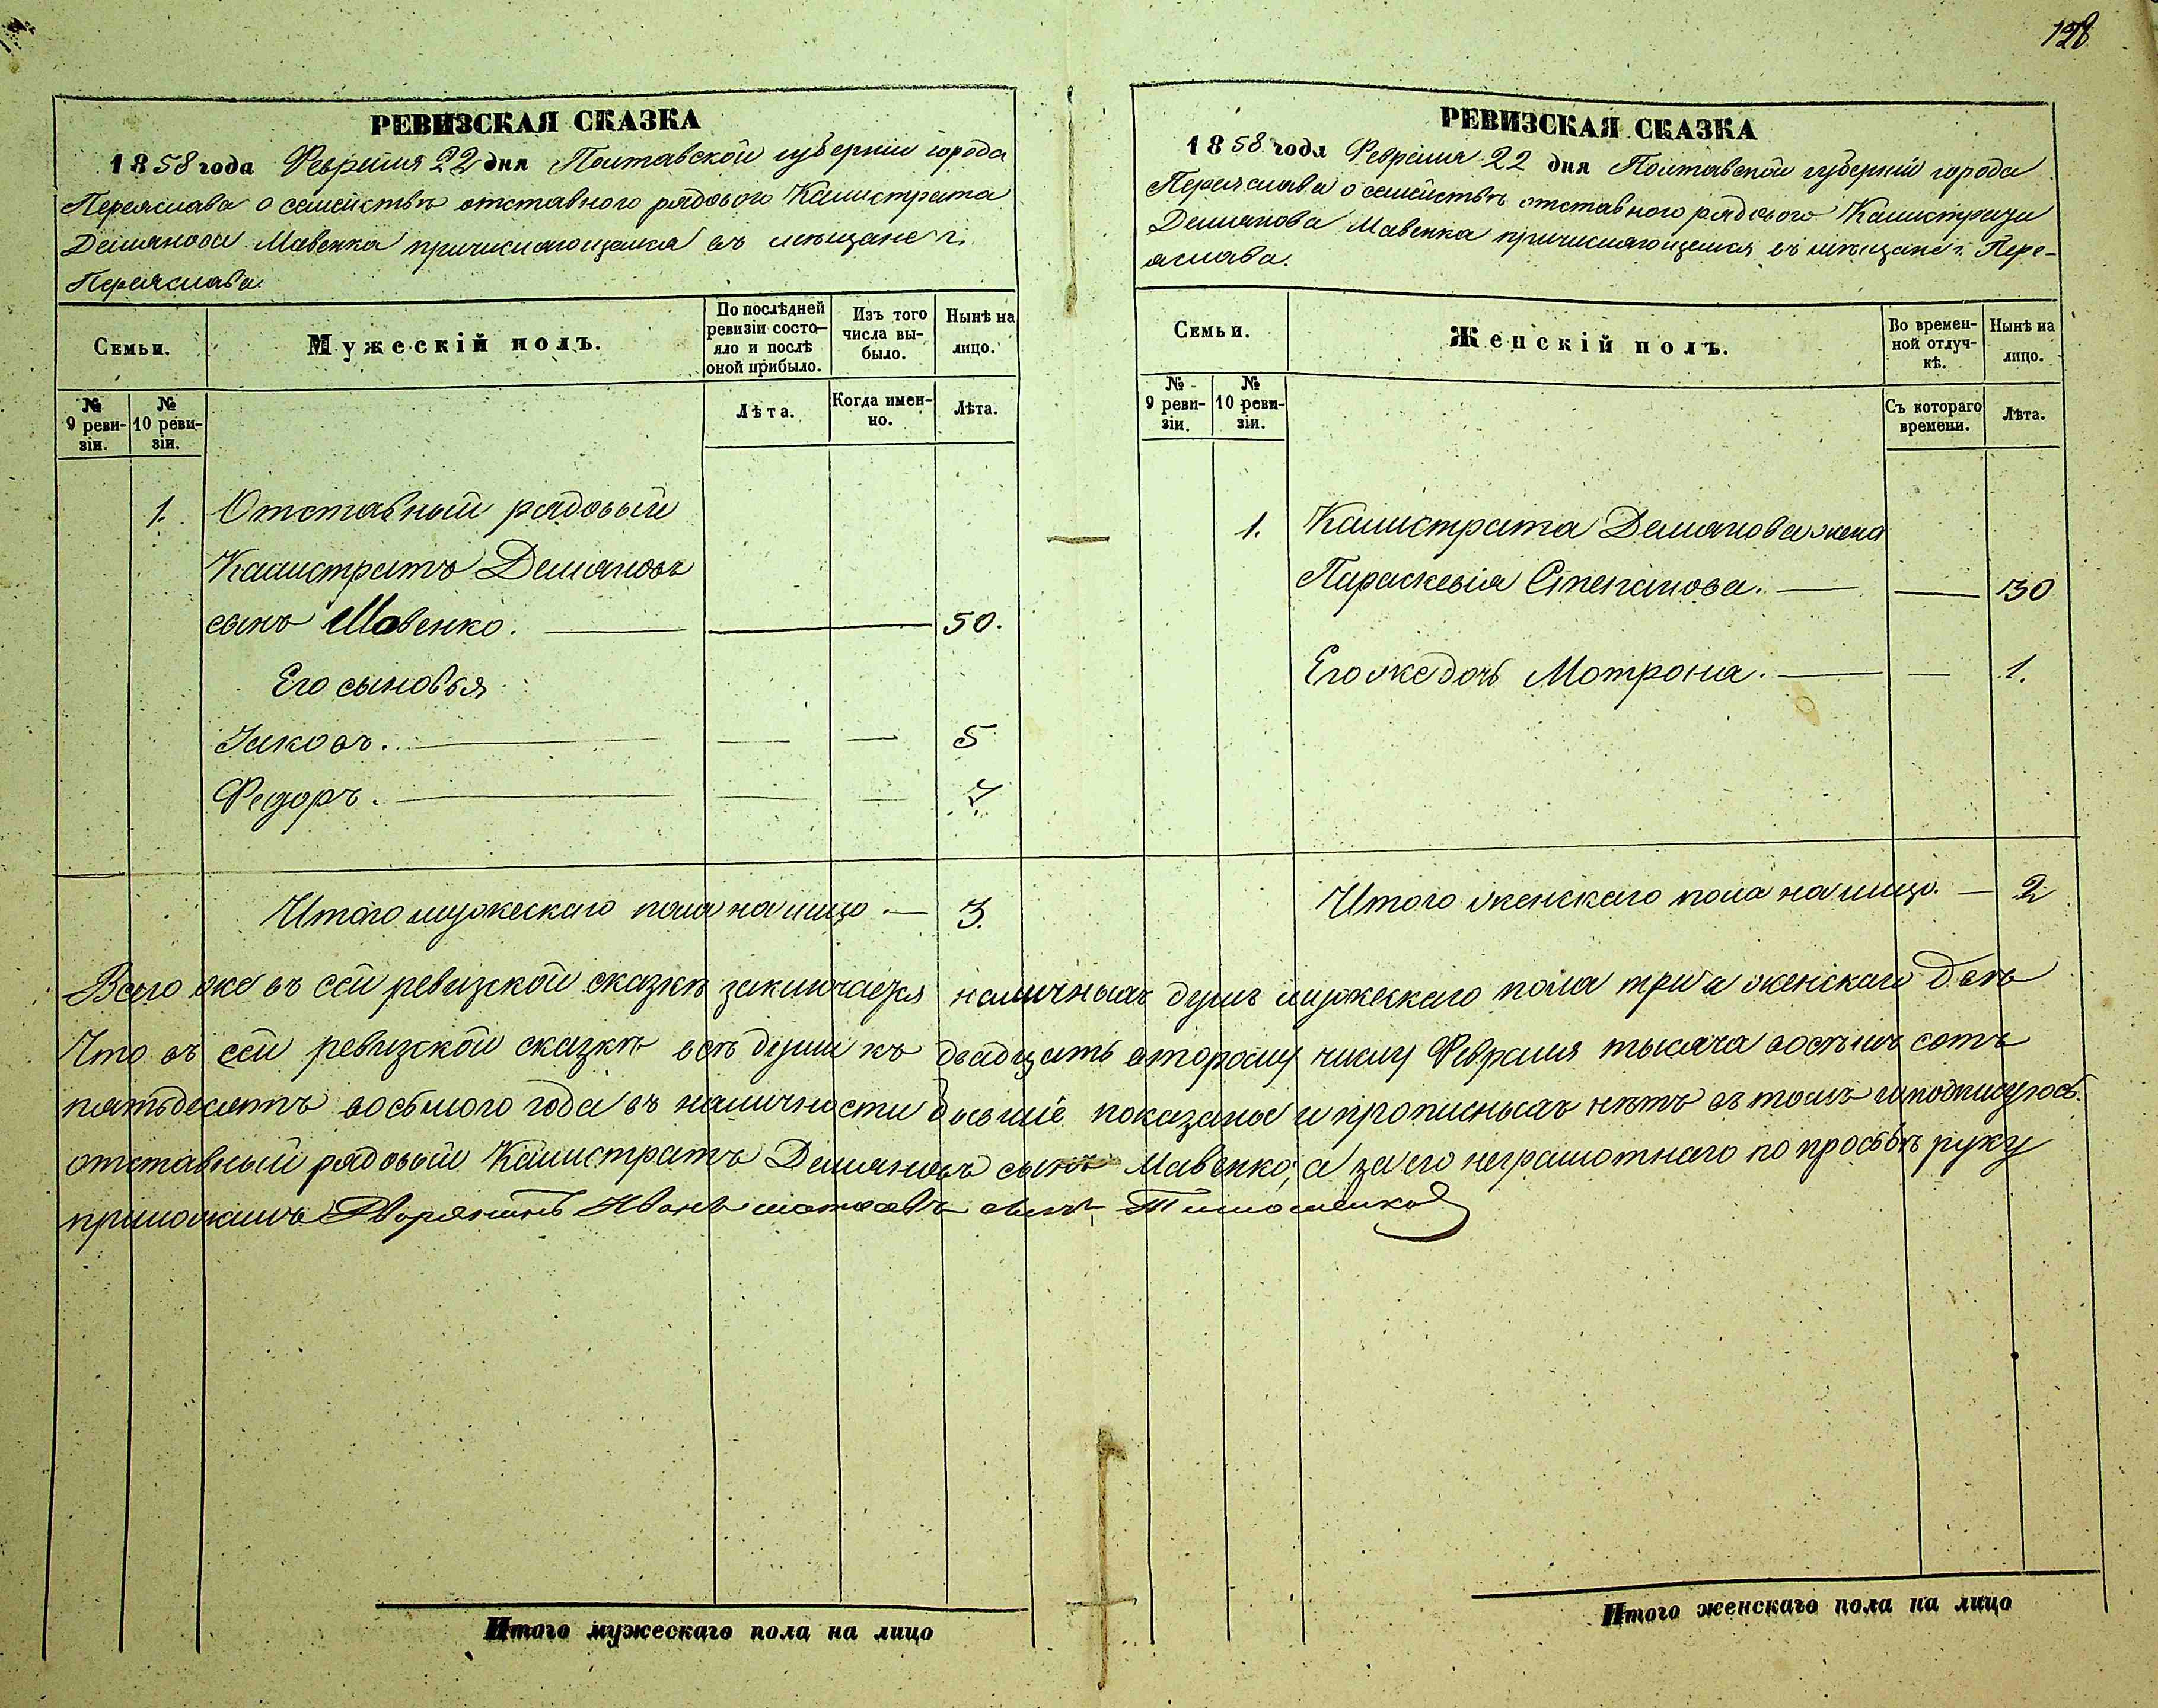 128
РЕВИЗСКАЯ СКАЗКА
1858 года Февраля 22 дня Полтавской губернии города
Переяслава о семействѣ отставного рядового Калистрата
Демянова Мавенка причисляющемся въ мѣщане г.
Переяслава.
Семьи.
Мужескій полъ.
По послѣдней
ревизіи состо-
яло и послѣ
оной прибыло.
Изъ того
числа вы-
было.
Нынѣ на
лицо.
№
9 реви-
зіи.
№
10 реви-
зіи.
Лѣта.
Когда имен-
но.
Лѣта.
1. Отставный рядовый
Калистратъ Демяновъ
сынъ Мавенко. 50.
Его сыновья
Іаковъ. 5
Федоръ. 7.
Итого мужескаго пола на лицо 3.
РЕВИЗСКАЯ СКАЗКА
1858 года Февраля 22 дня Полтавской губерній города
Переяслава о семействѣ отставного рядового Калистрата
Демянова Мавенка причисляющемся въ мѣщане г. Пере-
яслава.
Семьи.
Женскій полъ.
Во времен-
ной отлуч-
кѣ.
Нынѣ на
лицо.
№
9 реви-
зіи.
№
10 реви-
зіи.
Съ котораго
времени.
Лѣта.
1. Калистрата Демянова жена
Параскевія Степанова. 30
Его же дочь Мотрона. 1.
Итого женскаго пола на лицо. 2
Всего же въ сей ревизской сказкѣ заключается наличныхъ душъ мужескаго пола три а женскаго двѣ
Что въ сей ревизской сказкѣ всѣ души къ двадцать второму числу Февраля тысяча восемь сотъ
пятьдесятъ восьмого года въ наличности бывшіе показаны и прописныхъ нѣтъ въ томъ и подписуюсь.
отставный рядовый Калистратъ Демяновъ сынъ Мавенко, а за его неграмотнаго по просьбѣ руку
приложилъ Дворянинъ Иванъ сынъ Тимошенко
Итого мужескаго пола на лицо
Итого женскаго пола на лицо